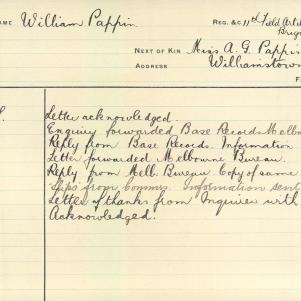 AME William Pappin
REG. &C 11th Field Artil
Brig
NEXT OF KIN Miss A. G. Pappi
ADDRESS Williamstown
Letter acknowledged.
Enquiry forwarded Base Records Melbo
Reply from Base Records. Information
Letter forwarded Melbourne Bureau.
Reply from Melb. Bureau. Copy of same
Slips from Commrs. Information sent
Letter of thanks from Inquirer with
Acknowledged.